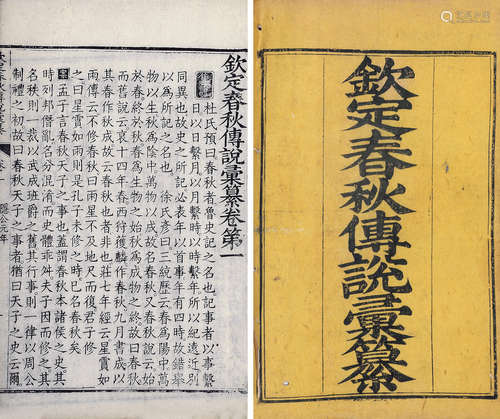 欽定春秋傳說彙纂
欽定春秋傳說彙纂卷第一
杜氏預曰春秋者魯史記之名也記事者以事繫
日以日繫月以月繫時以時繫年所以紀遠近別
同異也故史之所記必表年以首事年有四時故錯舉
以為所記之名也 徐氏彥曰三統歷云春為陽中萬
物以生秋為陰中萬物以成故名春秋又春秋說云始
於春終於秋春為生物之始秋為成物之終故曰春秋
而舊說云哀十四年春西狩獲麟作春秋九月書成以
其春作秋成故云春秋也者非也莊七年經云星霣如
雨傳云不修春秋曰雨星不及地尺而復君子修
之曰星霣如雨則是孔子未修之時已名春秋矣
案 孟子言春秋天子之事也蓋謂春秋本諸侯之史其
時列邦僭亂名分混淆而史體乖舛夫子因而修之其
名秩則一裁以武成班爵之舊其行事則一律以周公
制禮之初故曰春秋天子之事者猶曰天子之史云爾
隱公元年